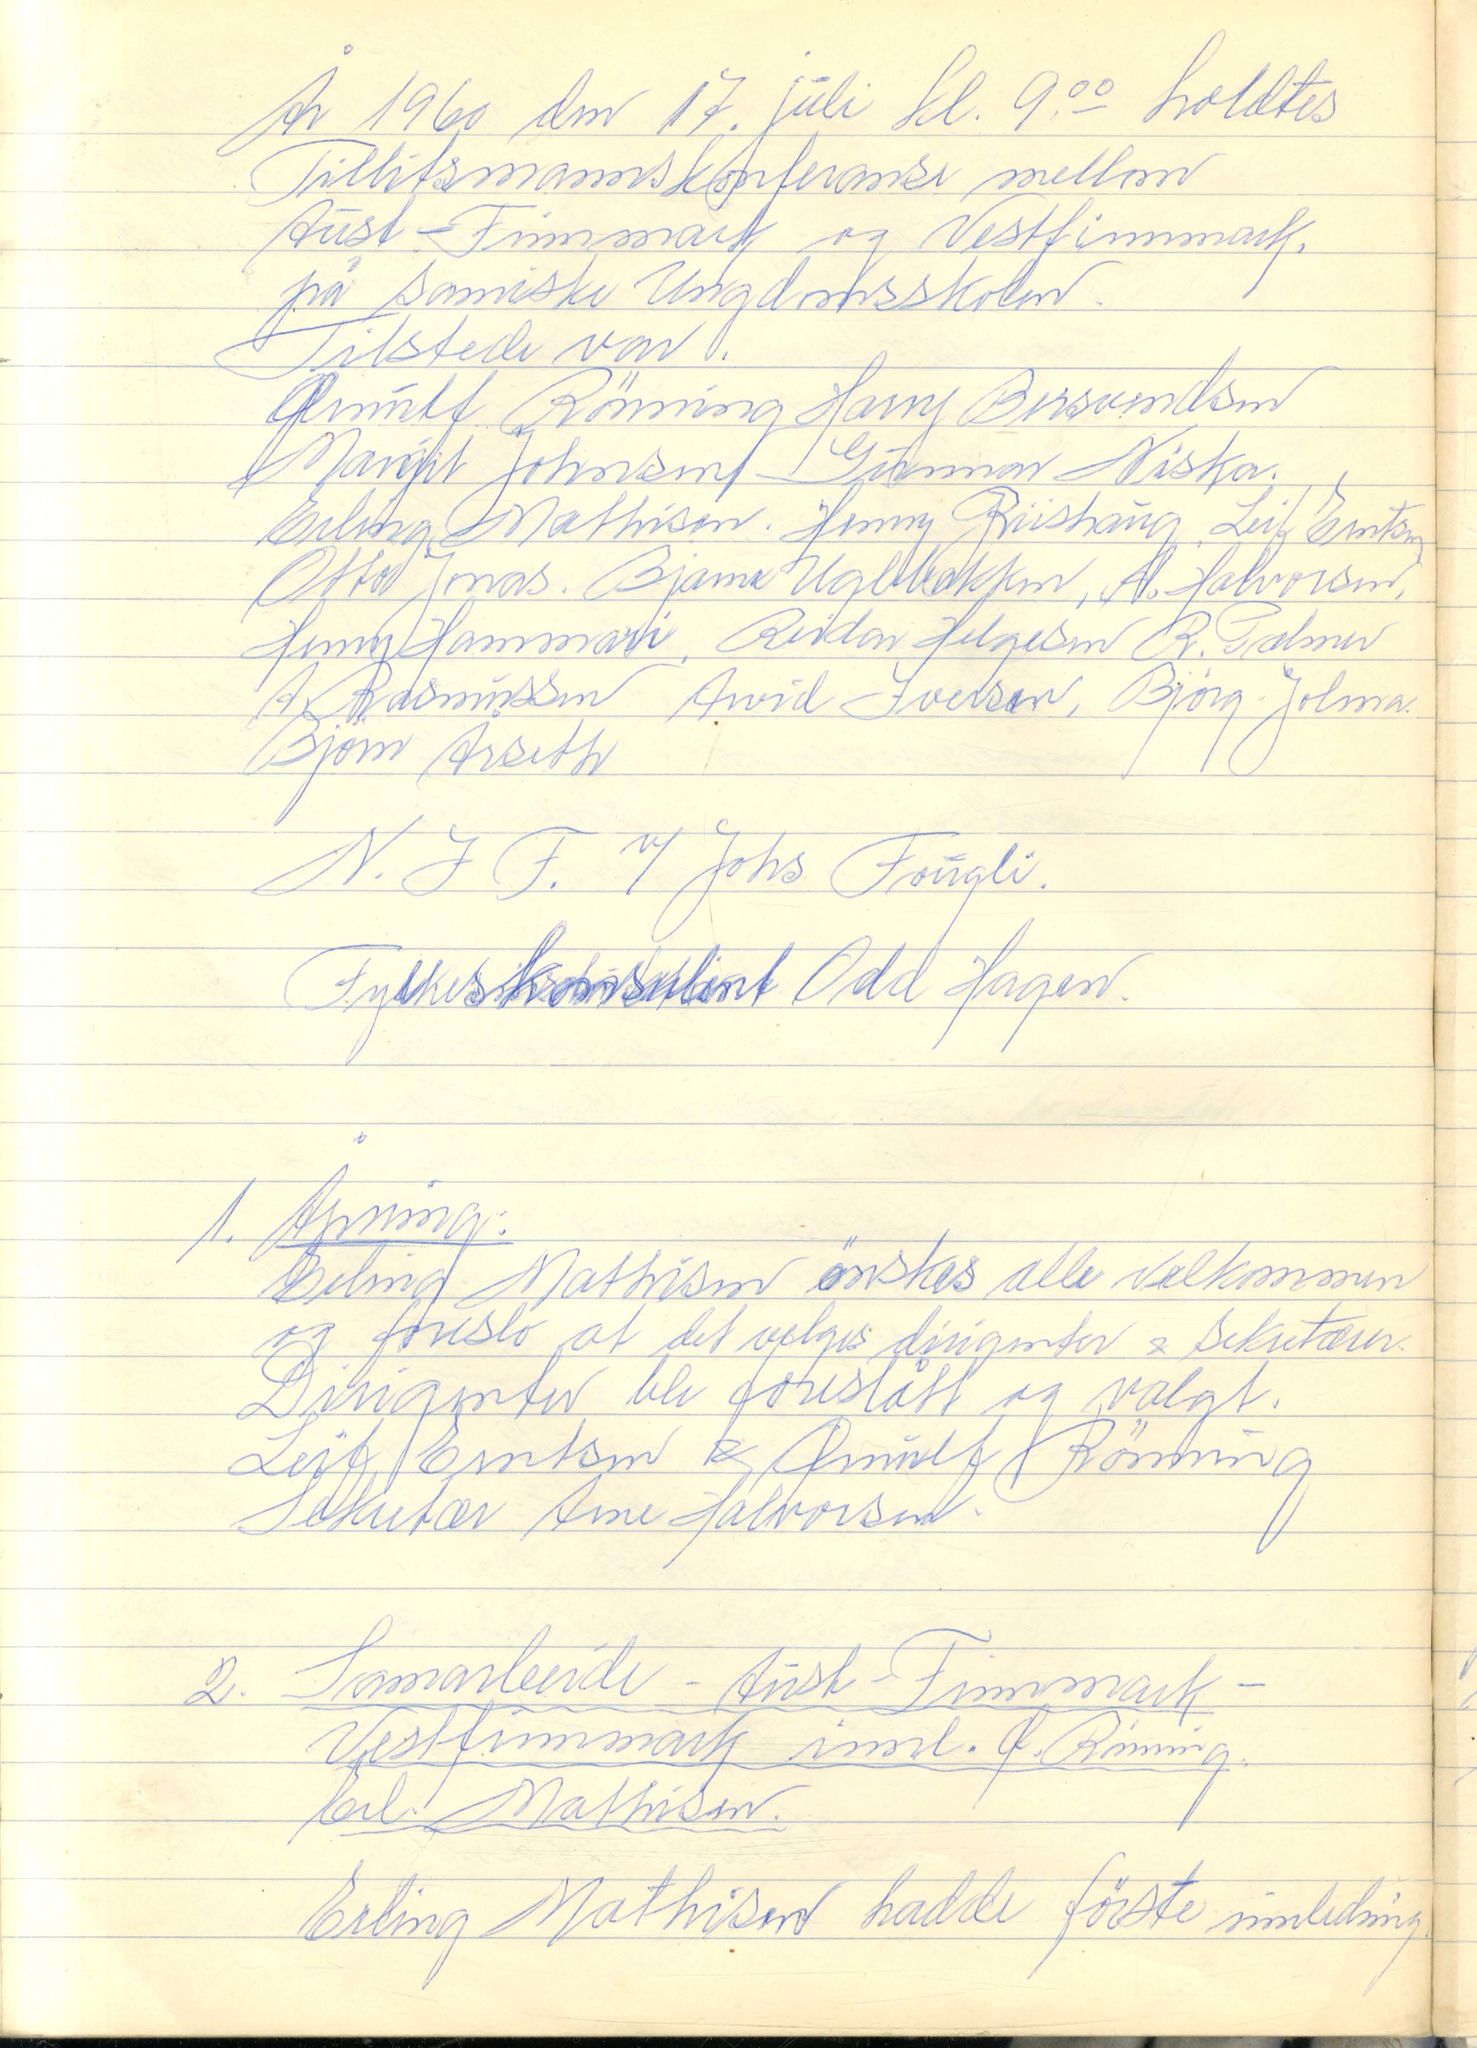 År 1960 den 17. juli kl. 9.00 holdtes
Tillitsmannskonferanse mellom
Aust-Finnmark og Vestfinnmark.
på samiske Ungdomsskolen.
Tilstede var.
Ørnulf Rönning Harry Bersvendsen
Margit Johnsen Gunnar Niska.
Erling Mathisen. Henny Riishaug, Leif Erntsen
Otto Jonas. Bjarne Uglebakken, A. Halvorsen,
Henry Hammari, Reidar Helgesen R. Palmer
A. Rasmussen Arvid Iversen, Bjørg Jolma.
Bjørn Årseth
N. J F. v/ Johs Fougli.
Fylkeskonsulent Odd Hagen.
1. Åpning:
Erling Mathisen önskes alle velkommen
og foreslo at det velges dirigenter & sekretærer.
Dirigenter ble foreslått og valgt.
Leif Erntsen & Ørnulf Rönning
Sekretær Arne Halvorsen.
2. Samarbeide - Aust-Finnmark -
Vestfinnmark innl. Ø. Rönning.
Erl. Mathisen.
Erling Mathisen hadde förste innledning